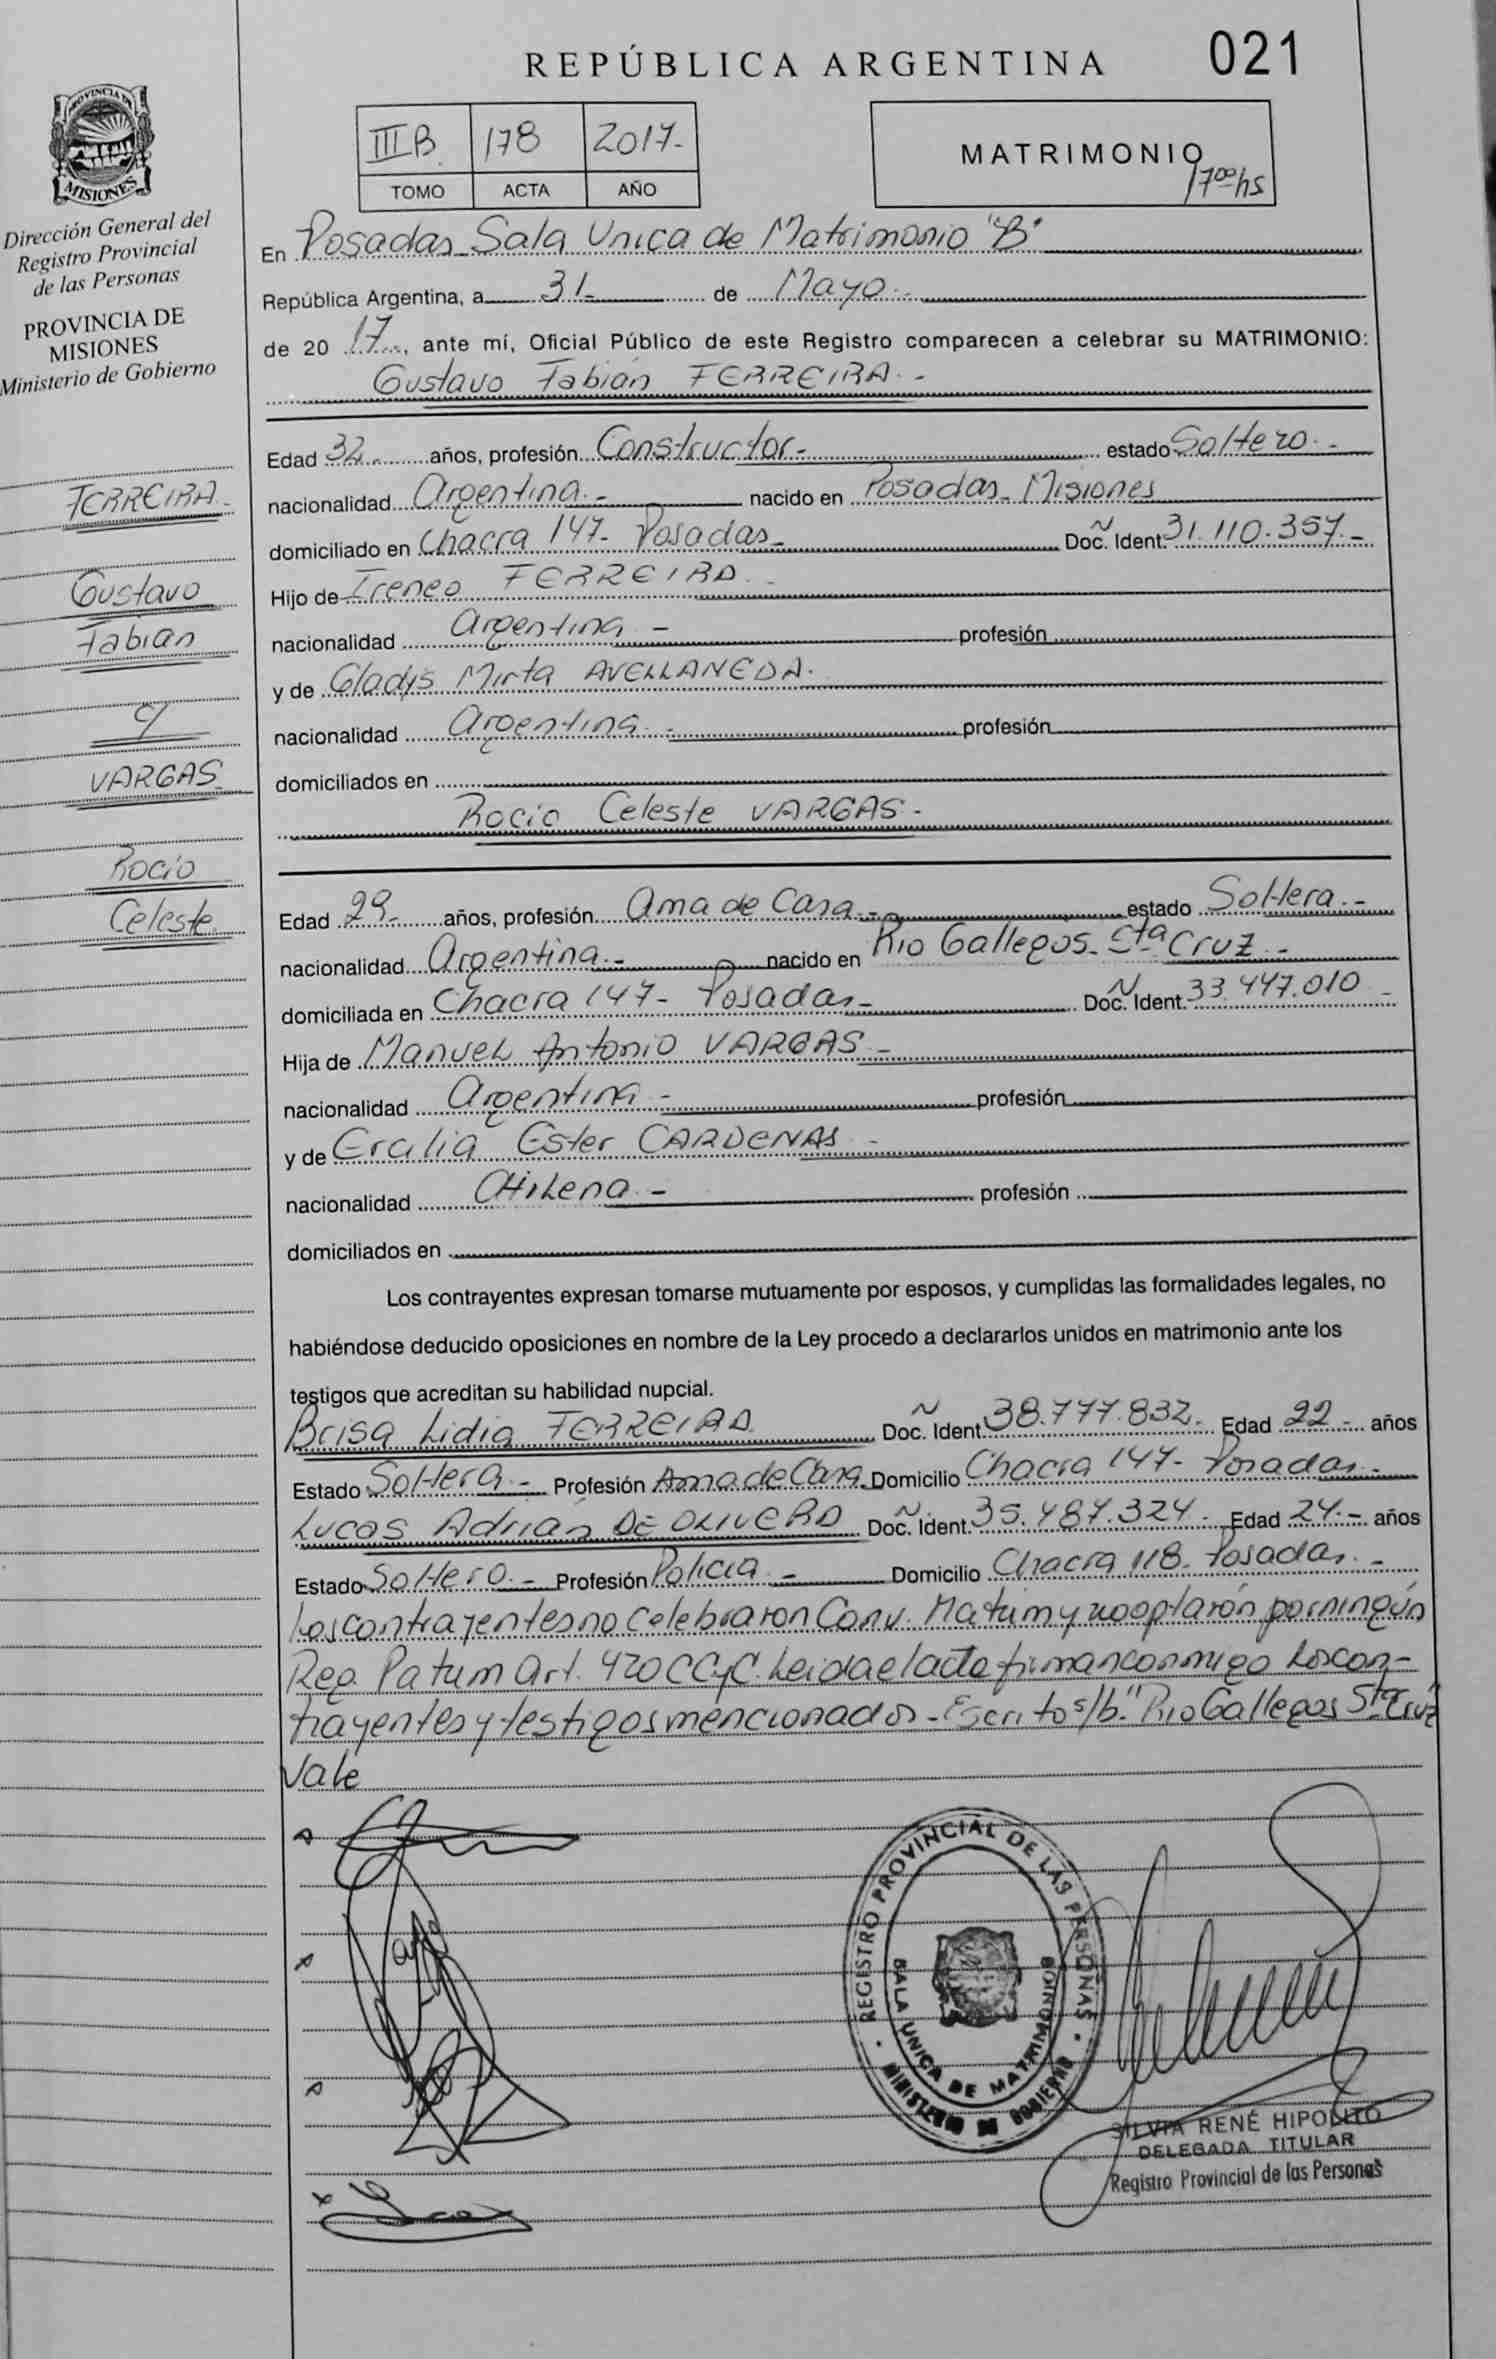 REPÚBLICA ARGENTINA 021
PROVINCIA DE
MISIONES
Dirección General del
Registro Provincial
de las Personas
PROVINCIA DE
MISIONES
Ministerio de Gobierno
FERREIRA
Gustavo
Fabián
c/
VARGAS
Rocio
Celeste
III B 178 2017-
TOMO ACTA AÑO
MATRIMONIO
17 00 hs
En Posadas Sala Unica de Matrimonio "B"
República Argentina, a 31- de Mayo.-
de 20 17, ante mí, Oficial Público de este Registro comparecen a celebrar su MATRIMONIO:
Gustavo Fabián FERREIRA.-
Edad 32.- años, profesión Constructor.- estado Soltero.-
nacionalidad Argentina.- nacido en Posadas- Misiones
domiciliado en Chacra 147- Posadas- Doc. Ident. Ñ 31.110.357.-
Hijo de Ireneo FERREIRA.-
nacionalidad Argentina - profesión
y de Gladys Mirta AVELLANEDA.
nacionalidad Argentina.- profesión
domiciliados en
Rocio Celeste VARGAS-
Edad 29.- años, profesión Ama de Casa.- estado Soltera.-
nacionalidad Argentina.- nacido en Rio Gallegos- Sta Cruz.-
domiciliada en Chacra 147- Posadas- Doc. Ident. Ñ 33.447.010-
Hija de Manuel Antonio VARGAS-
nacionalidad Argentina - profesión
y de Ester CARDENAS -
nacionalidad Chilena.- profesión
domiciliados en
Los contrayentes expresan tomarse mutuamente por esposos, y cumplidas las formalidades legales, no
habiéndose deducido oposiciones en nombre de la Ley procedo a declararlos unidos en matrimonio ante los
testigos que acreditan su habilidad nupcial.
Brisa Lidia FERREIRA Doc. Ident. Ñ 38.777.832.- Edad 22.- años
Estado Soltera.- Profesión Ama de Casa Domicilio Chacra 147- Posadas.-
Lucas Adrián DE OLIVERA Doc. Ident. Ñ 35.487.324.- Edad 24.- años
Estado Soltero.- Profesión Policia.- Domicilio Chacra 118- Posadas.-
Los contrayentes no celebraron Conv. Matrim y no optarón por ningún
Reg. Patrim Art. 420 CCyC. Leida el acta firman conmigo los con-
trayentes y testigos mencionados- Escrito s/b "Rio Gallegos Sta Cruz"
Vale
REGISTRO PROVINCIAL DE LAS PERSONAS
SALA UNICA DE MATRIMONIOS
MINISTERIO DE GOBIERNO
SILVIA RENÉ HIPOLITO
DELEGADA TITULAR
Registro Provincial de las Personas